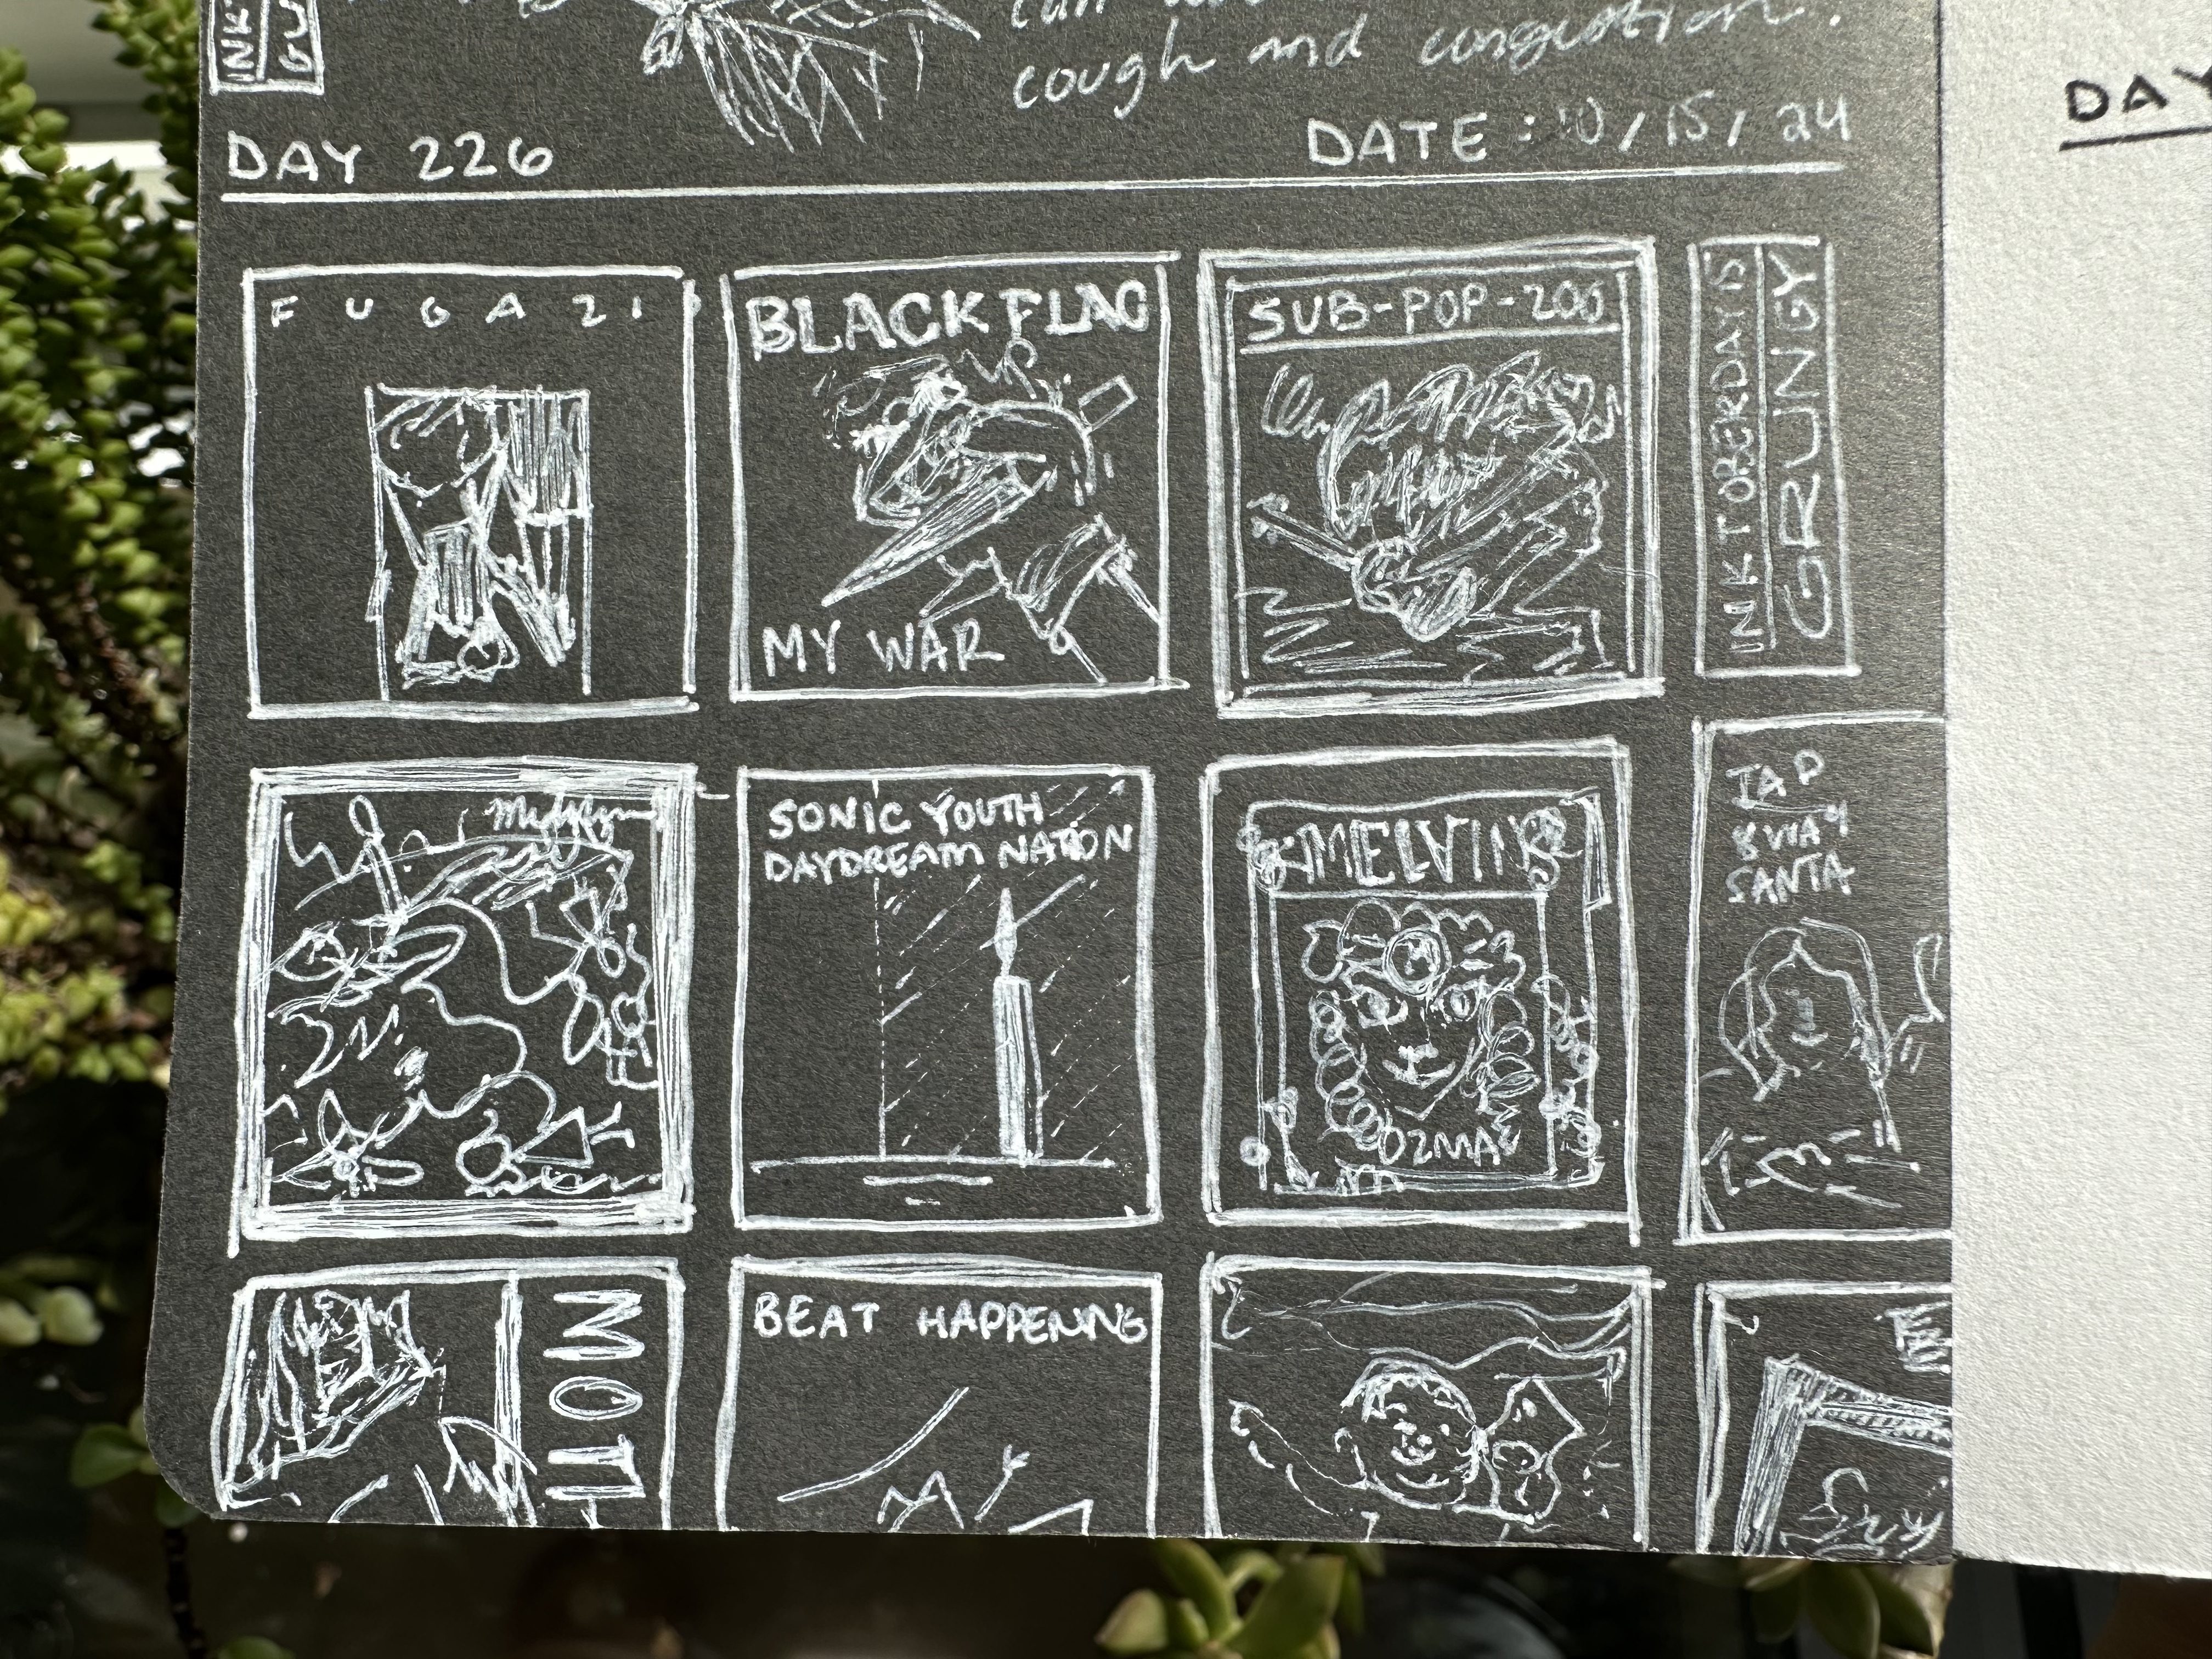 cough and congestion.
DAY 226
DATE: 10/15/24
FUGAZI
BLACK FLAG
MY WAR
SUB-POP-200
INKTOBERDAY15
GRUNGY
SONIC YOUTH
DAYDREAM NATION
MELVINS
OZMA
TAD
8 WAY
SANTA
MOTH
BEAT HAPPENING
DAY